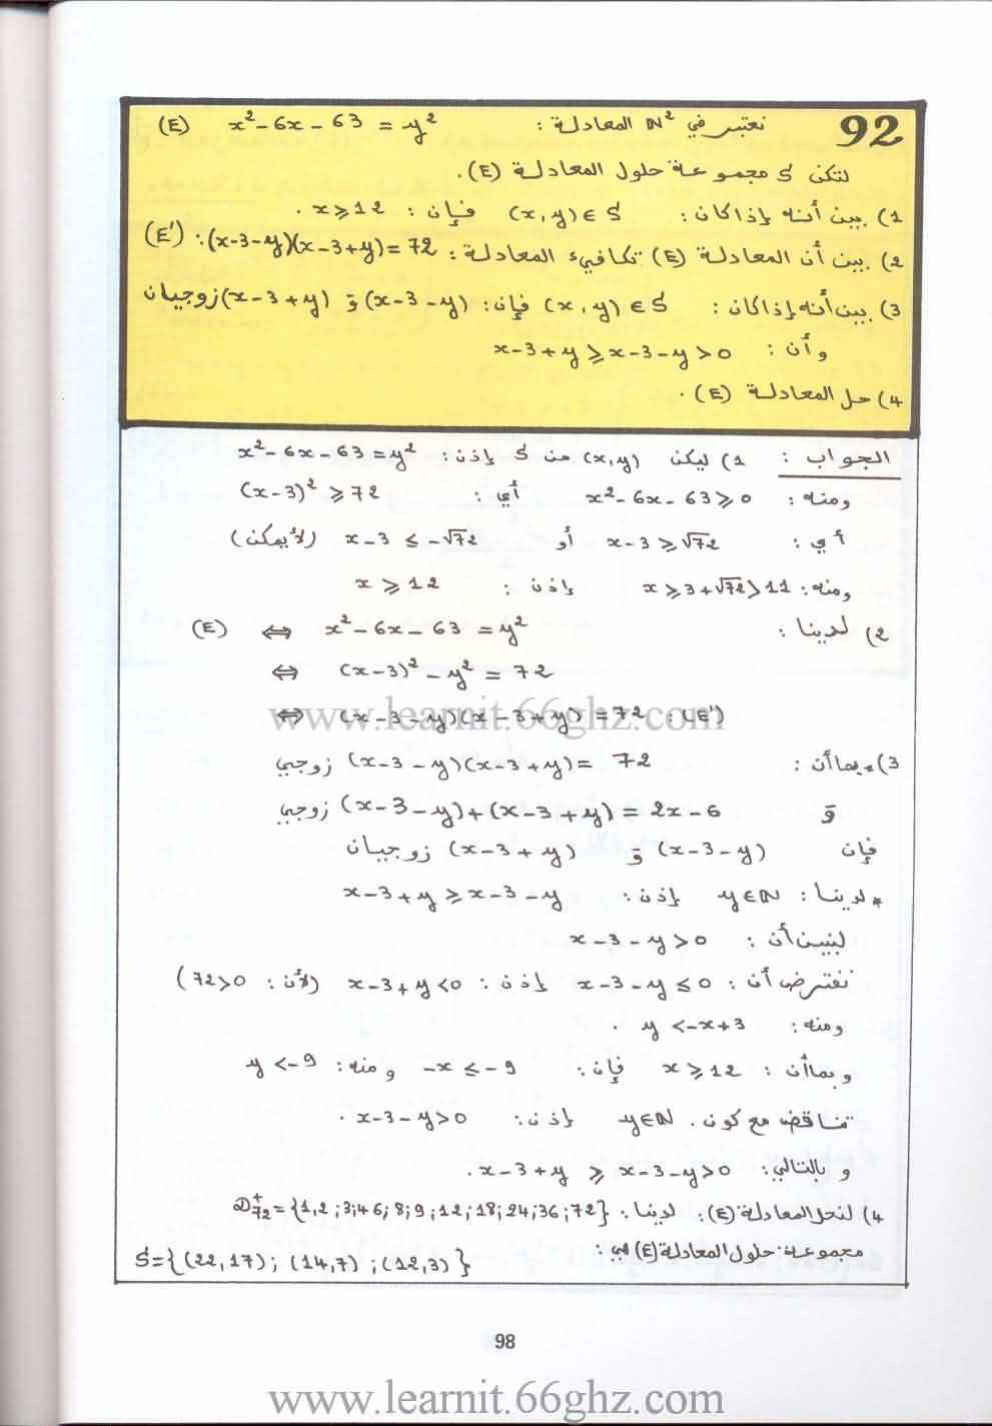 92 نعتبر في ℕ² المعادلة : x² - 6x - 63 = y² (E)
لتكن S مجموعة حلول المعادلة (E).
1) بين أنه إذا كان : (x,y) ∈ S فإن : x ⩾ 12 .
2) بين أن المعادلة (E) تكافيء المعادلة : (x-3-y)(x-3+y) = 72 : (E')
3) بين أنه إذا كان : (x,y) ∈ S فإن : (x-3-y) و (x-3+y) زوجيان
وأن : x-3+y ⩾ x-3-y > 0
4) حل المعادلة (E) .
الجواب : 1) ليكن (x,y) من S إذن : x² - 6x - 63 = y²
ومنه : x² - 6x - 63 ⩾ 0 أي : (x-3)² ⩾ 72
أي : x-3 ⩾ √72 أو x-3 ≤ -√72 (لايمكن)
ومنه : x ⩾ 3+√72 > 11 إذن : x ⩾ 12
2) لدينا : x² - 6x - 63 = y² ⇔ (E)
⇔ (x-3)² - y² = 72
⇔ (x-3-y)(x-3+y) = 72 : (E')
www.learnit.66ghz.com
3) * بما أن : (x-3-y)(x-3+y) = 72 زوجي
و (x-3-y)+(x-3+y) = 2x-6 زوجي
فإن (x-3-y) و (x-3+y) زوجيان
* لدينا : y∈ℕ إذن : x-3+y ⩾ x-3-y
لنبين أن : x-3-y > 0
نفترض أن : x-3-y ≤ 0 إذن : x-3+y < 0 (لأن : 72>0)
ومنه : y < -x+3 .
وبما أن : x ⩾ 12 فإن : -x ≤ -9 ومنه : y < -9
تناقض مع كون . y∈ℕ إذن : x-3-y > 0 .
وبالتالي : x-3+y ⩾ x-3-y > 0 .
4) لنحل المعادلة (E) : لدينا : D⁺₇₂ = {1,2;3;4 6;8;9;12;18;24;36;72}
مجموعة حلول المعادلة (E) هي : S = {(22,17);(14,7);(12,3)}
98
www.learnit.66ghz.com